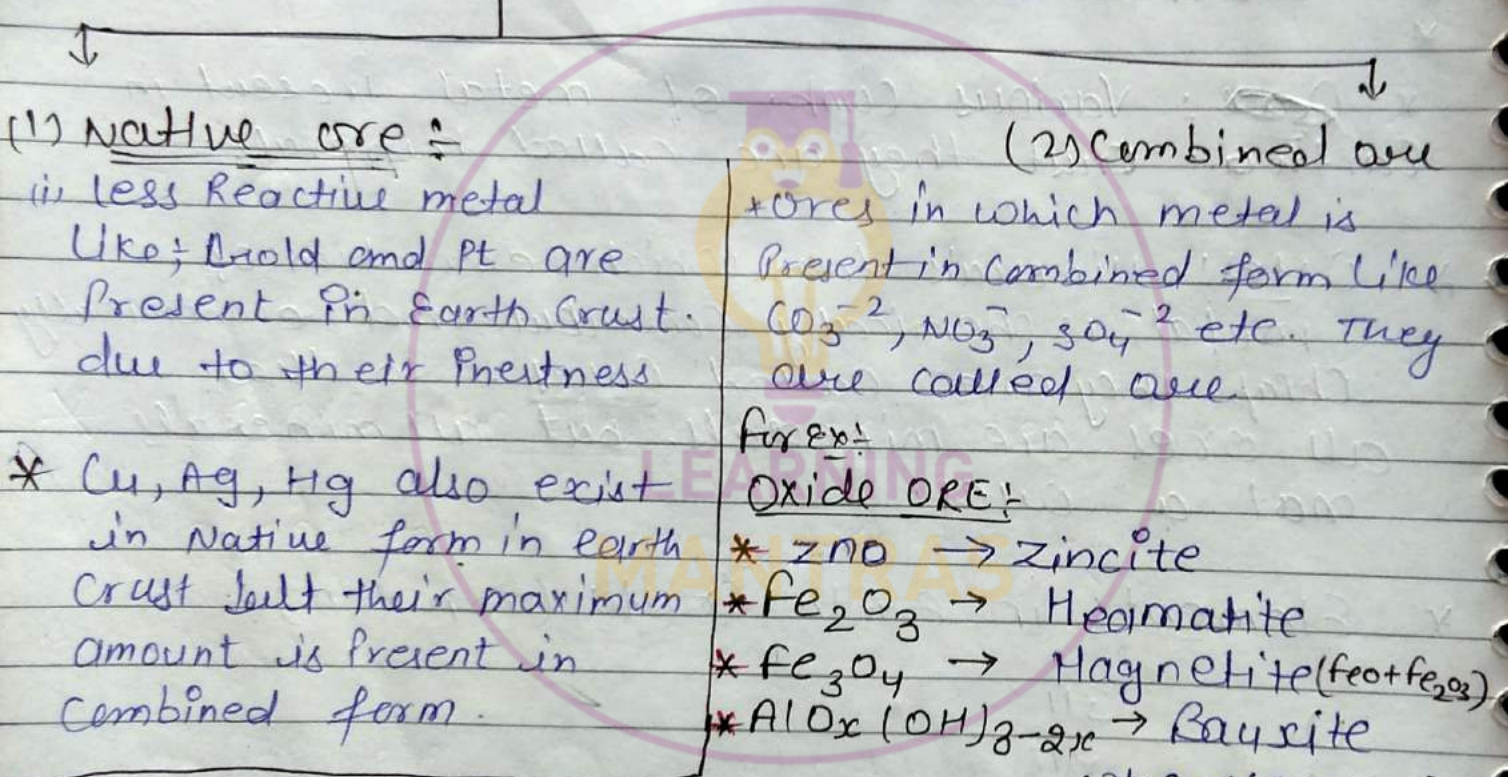 (1) Native ore :-
(i) less Reactive metal
like :- Gold and Pt are
Present in Earth Crust.
due to their inertness
* Cu, Ag, Hg also exist
in Native form in earth
Crust but their maximum
amount is Present in
Combined form.
(2) Combined ore
*Ores in which metal is
Present in Combined form like
CO₃⁻², NO₃⁻, SO₄⁻² etc. They
are called ore.
for Ex:-
Oxide ORE :-
* ZnO → Zincite
* Fe₂O₃ → Heamatite
* Fe₃O₄ → Magnetite (FeO+Fe₂O₃)
* AlOx (OH)₃₋₂ₓ → Bauxite
LEARNING
MANTRAS